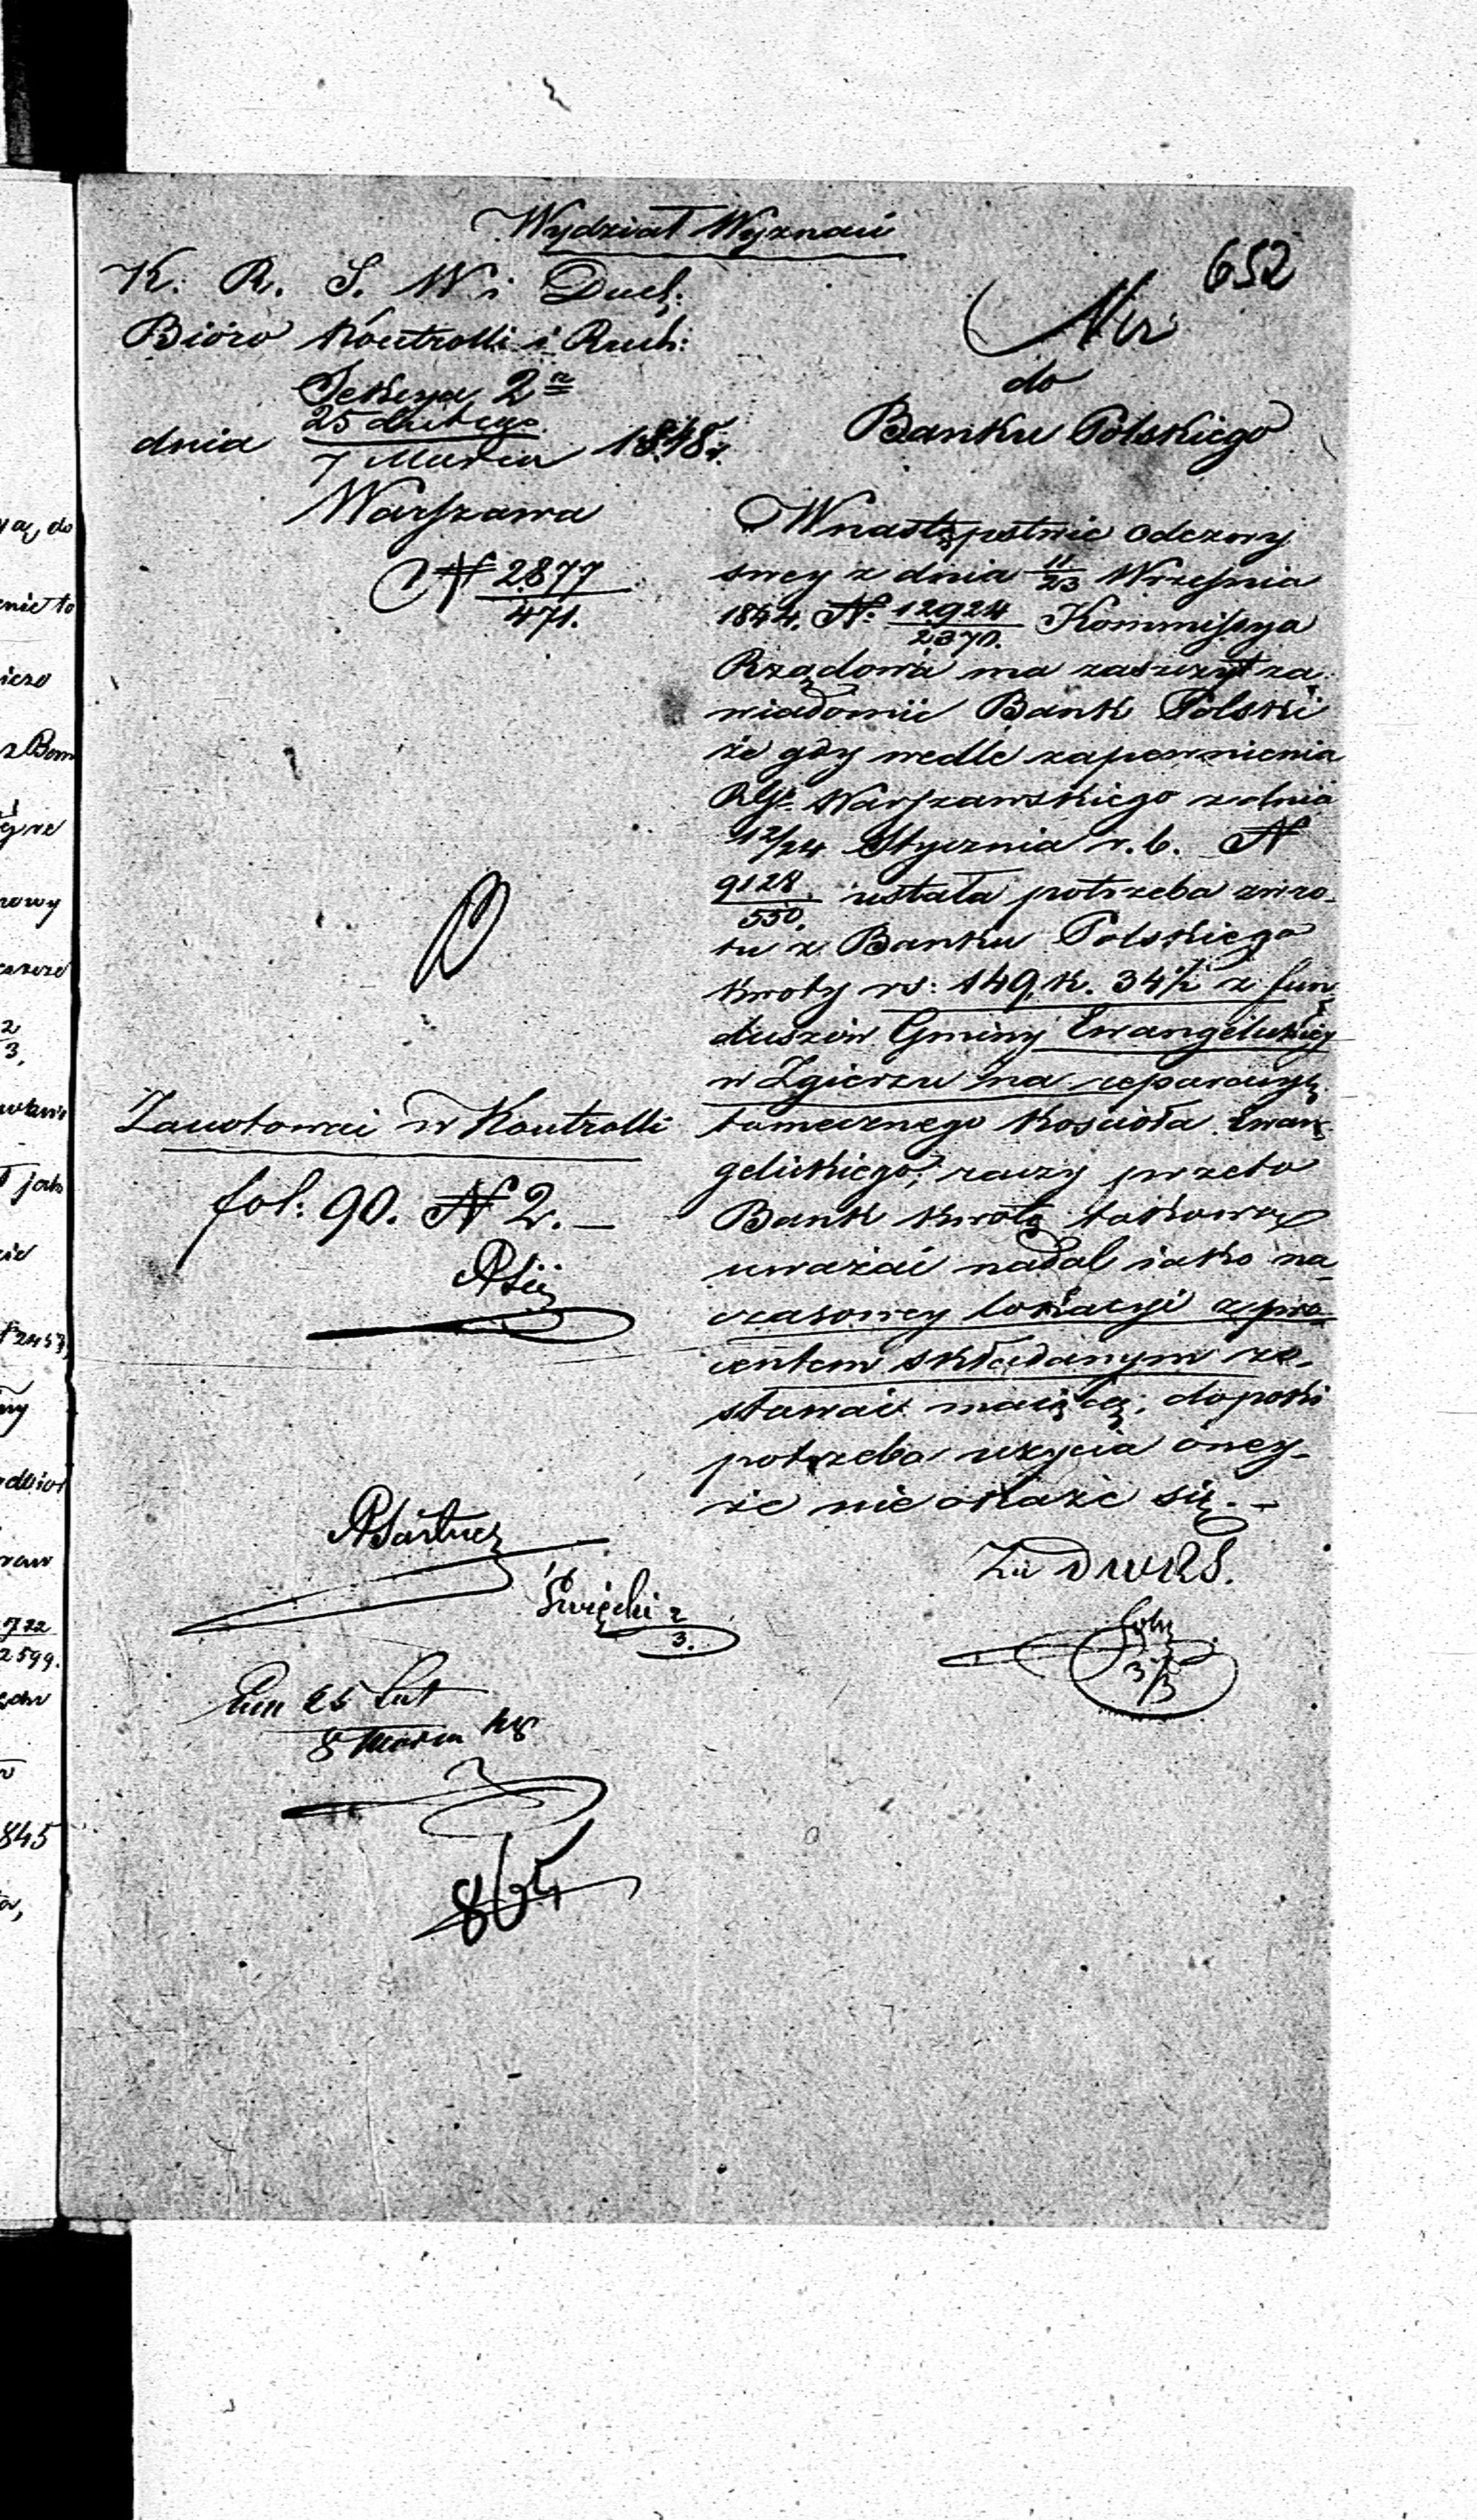 Wydział Wyznań
652
K. R. S. W i Duch:
Bióro Kontrolli i Rach:
Sekcya 2a
dnia 25 Lutego / 7 Marca 1848 r.
Warszawa
N 2877 / 471.
do
Banku Polskiego
W następstwie odezwy
swey z dnia 11/23 Września
1844. N. 12924 / 2370. Kommissya
Rządowa ma zaszczyt za-
wiadomić Bank Polski
że gdy wedle zapewnienia
RGo Warszawskiego z dnia
12/24 Stycznia r. b. N
9128 / 550. ustała potrzeba zwro-
tu z Banku Polskiego
kwoty rs: 149, k. 34½ z fun-
duszów Gminy Ewangelickiej
w Zgierzu na reparacyę
tamecznego kościoła Ewan-
gelickiego; raczy przeto
Bank kwotę takową
uważać nadal iako na
czasowey lokacyi z pro-
centem składanym zo-
stawać maiącą; dopóki
potrzeba użycia oney-
że nie okaże się. -
Zanotować w Kontrolli
fol: 90. N 2. -
Święcki 2/3.
Za DWRS.
3/3
25 Lut / 8 Marca
864